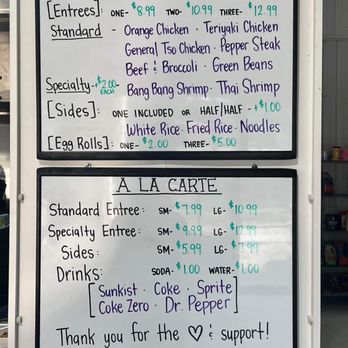 [Entrees] ONE- $8.99 TWO- $10.99 THREE- $12.99
Standard - Orange Chicken · Teriyaki Chicken
General Tso Chicken · Pepper Steak
Beef & Broccoli · Green Beans
Specialty-+$2.00 EACH Bang Bang Shrimp · Thai Shrimp
[Sides]: ONE INCLUDED OR HALF/HALF - +$1.00
White Rice · Fried Rice · Noodles
[Egg Rolls]: ONE- $2.00 THREE- $5.00
A LA CARTE
Standard Entree: SM- $7.99 LG- $10.99
Specialty Entree: SM- $9.99 LG- $12.99
Sides: SM- $5.99 LG- $7.99
Drinks: SODA- $1.00 WATER- $1.00
[Sunkist · Coke · Sprite
Coke Zero · Dr. Pepper]
Thank you for the ♡ & support!